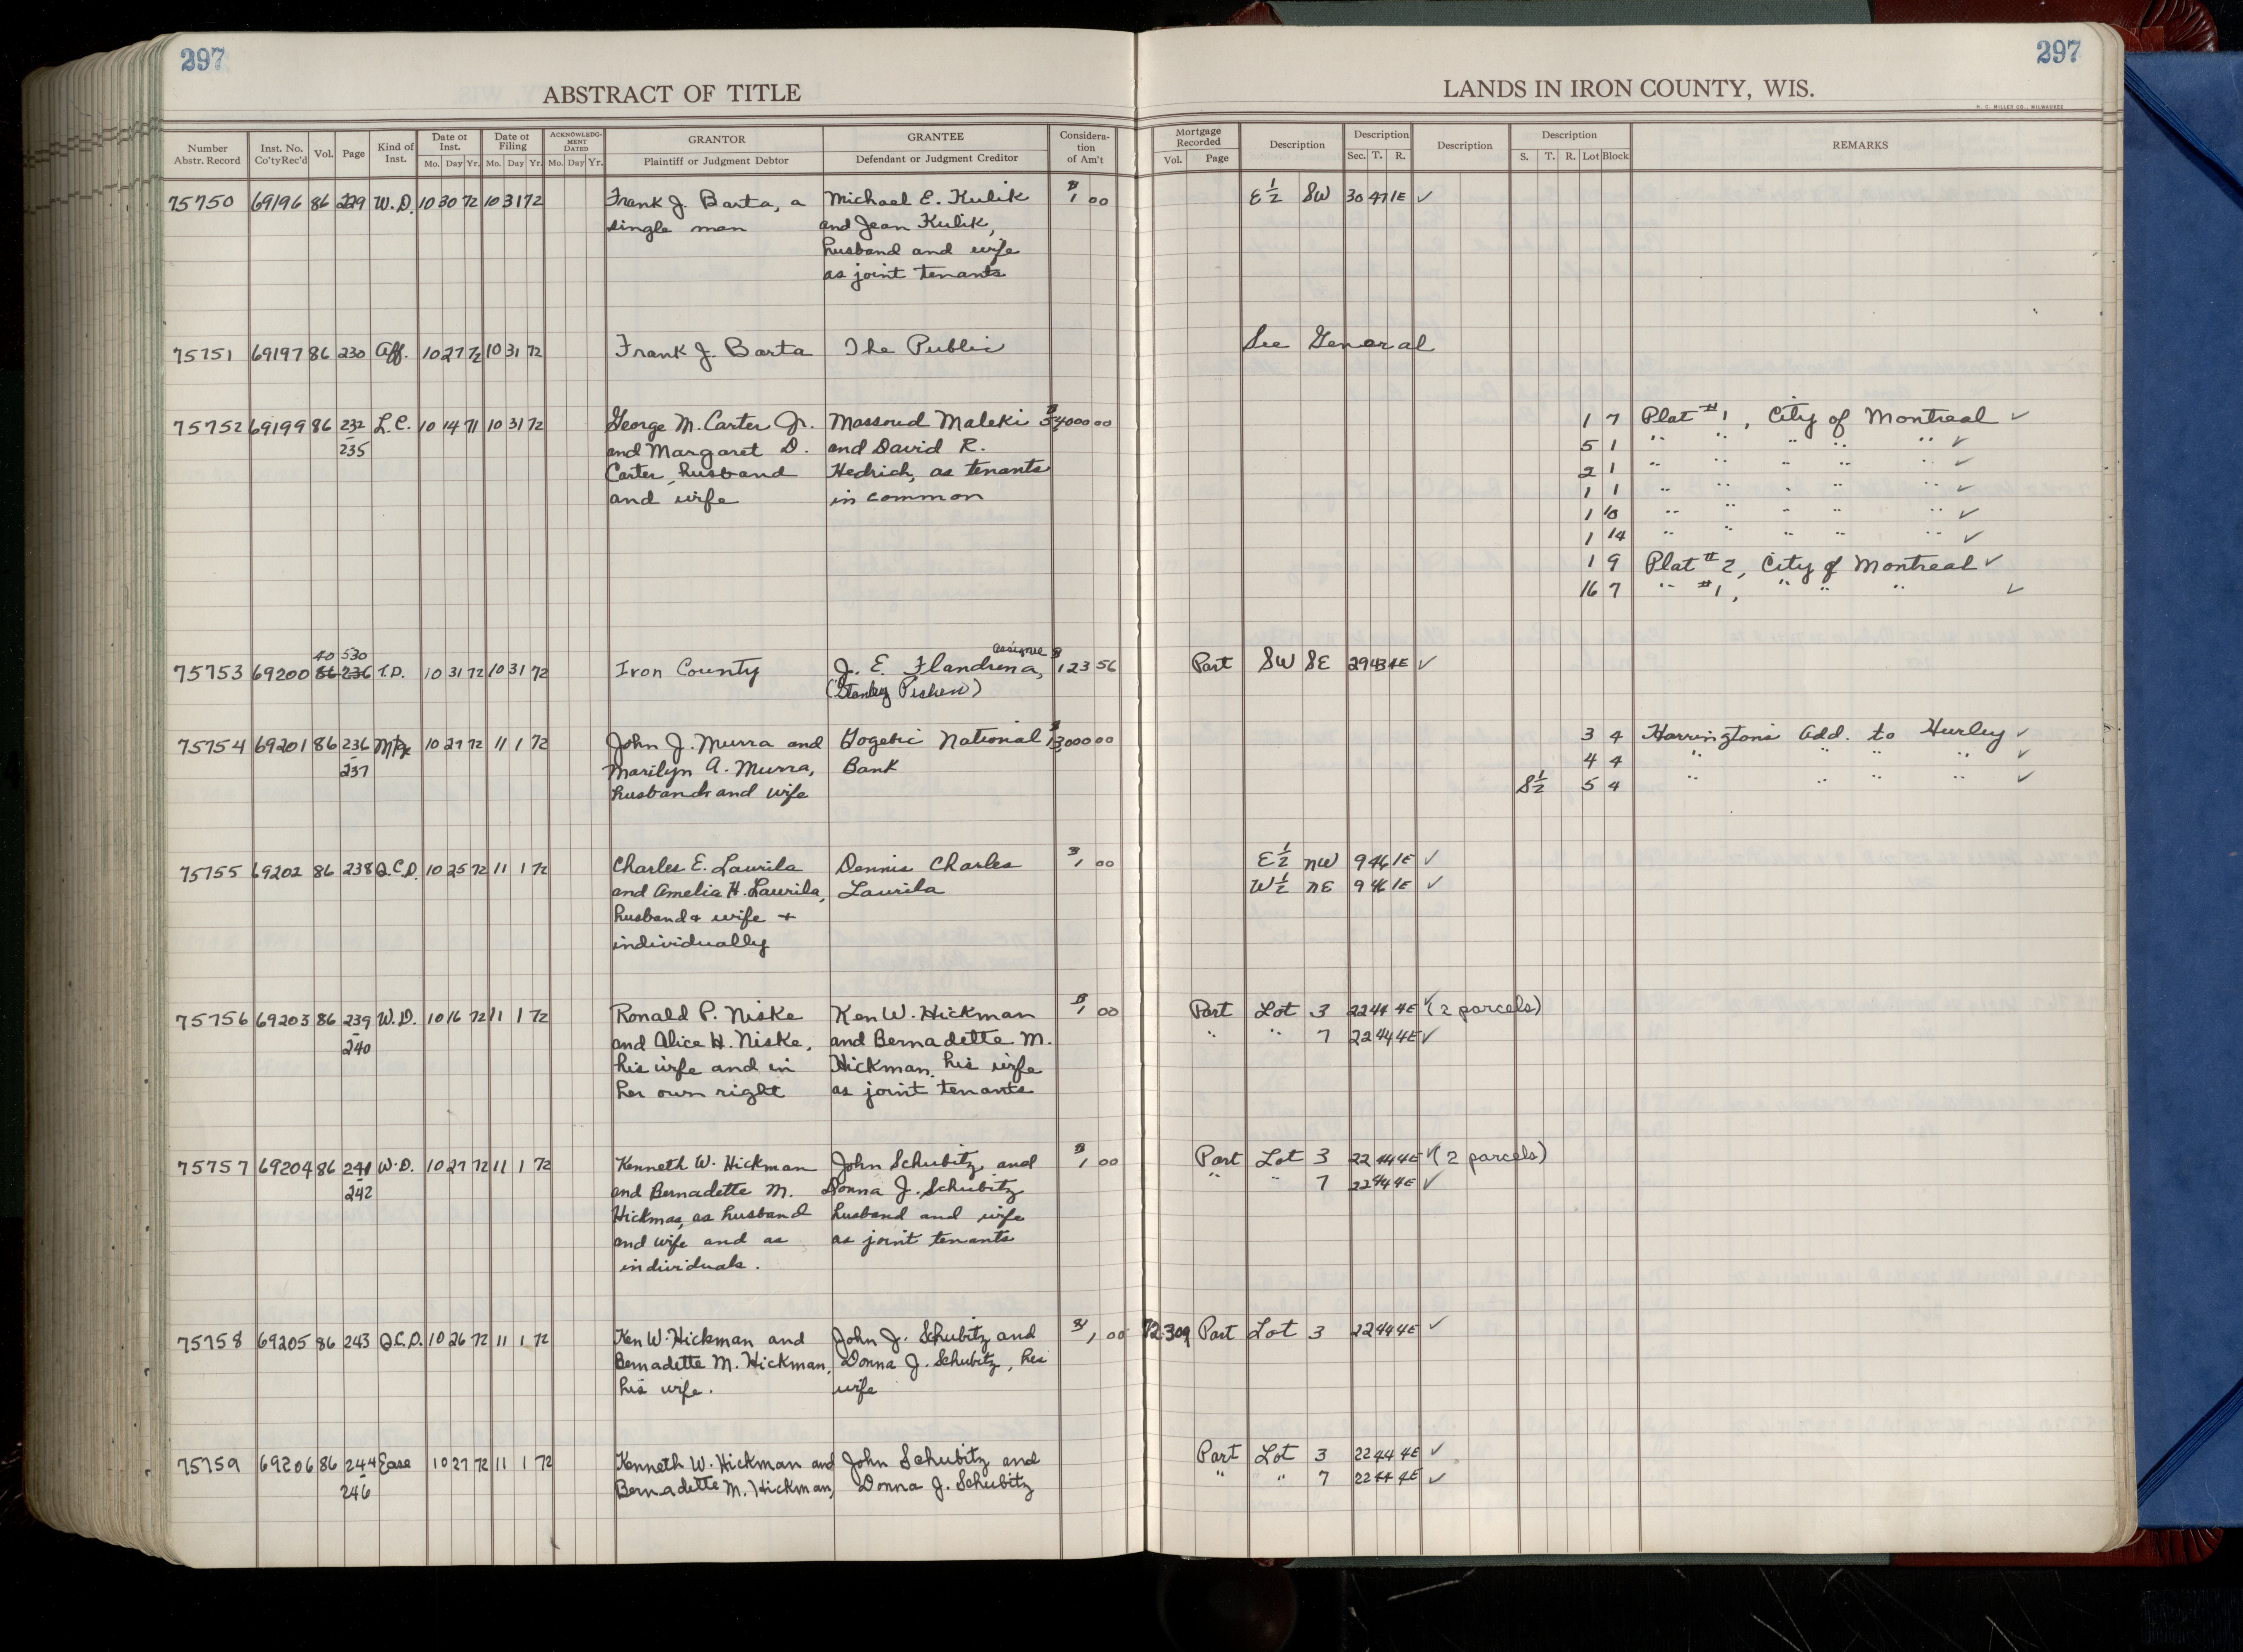 297
ABSTRACT OF TITLE
297
LANDS IN IRON COUNTY, WIS.
H. C. MILLER CO., MILWAUKEE
Number Abstr. Record Inst. No. Co'tyRec'd Vol. Page Kind of Inst. Date of Inst. Mo. Day Yr. Date of Filing Mo. Day Yr. ACKNOWLEDGMENT DATED Mo. Day Yr. GRANTOR Plaintiff or Judgment Debtor GRANTEE Defendant or Judgment Creditor Consideration of Am't Mortgage Recorded Vol. Page Description Description Sec. T. R. Description Description S. T. R. Lot Block REMARKS
75750 69196 86 229 W.D. 10 30 72 10 31 72 Frank J. Barta, a Michael E. Kulik $1 00 E½ SW 30 47 1E ✓
single man and Jean Kulik,
husband and wife
as joint tenants
75751 69197 86 230 Aff. 10 27 72 10 31 72 Frank J. Barta The Public See General
75752 69199 86 232 L.C. 10 14 71 10 31 72 George M. Carter Jr. Massoud Maleki 00 1 7 Plat #1, City of Montreal ✓
- 235 and Margaret D. and David R. 5 1 " " " " " ✓
Carter, husband Hedrich, as tenants 2 1 " " " " " ✓
and wife in common 1 1 " " " " " ✓
1 10 " " " " " ✓
1 14 " " " " " ✓
1 9 Plat #2, City of Montreal ✓
16 7 " #1, " " " ✓
40 530 assignee
75753 69200 86 236 T.D. 10 31 72 10 31 72 Iron County J. E. Flandrena, $123 56 Part SW SE 29 43 4E ✓
(Stanley )
75754 69201 86 236 Mtge 10 27 72 11 1 72 John J. Murra and Gogebic National $13000 00 3 4 Harringtons Add. to Hurley ✓
- 237 Marilyn A. Murra, Bank 4 4 " " " " ✓
husband and wife S½ 5 4 " " " " ✓
75755 69202 86 238 Q.C.D. 10 25 72 11 1 72 Charles E. Laurila Dennis Charles $1 00 E½ NW 9 46 1E ✓
and Amelia H. Laurila, Laurila W½ NE 9 46 1E ✓
husband & wife +
individually
75756 69203 86 239 W.D. 10 16 72 11 1 72 Ronald P. Niske Ken W. Hickman $1 00 Part Lot 3 22 44 4E ✓ (2 parcels)
- 240 and Alice H. Niske, and Bernadette M. " " 7 22 44 4E ✓
his wife and in Hickman, his wife
her own right as joint tenants
75757 69204 86 241 W.D. 10 27 72 11 1 72 Kenneth W. Hickman John Schubitz and $1 00 Part Lot 3 22 44 4E ✓ (2 parcels)
- 242 and Bernadette M. Donna J. Schubitz " " 7 22 44 4E ✓
Hickman, as husband husband and wife
and wife and as as joint tenants
individuals.
75758 69205 86 243 Q.C.D. 10 26 72 11 1 72 Ken W. Hickman and John J. Schubitz and $1 00 72 309 Part Lot 3 22 44 4E ✓
Bernadette M. Hickman, Donna J. Schubitz, his
his wife. wife
75759 69206 86 244 Ease 10 27 72 11 1 72 Kenneth W. Hickman and John Schubitz and Part Lot 3 22 44 4E ✓
- 246 Bernadette M. Hickman, Donna J. Schubitz " " 7 22 44 4E ✓